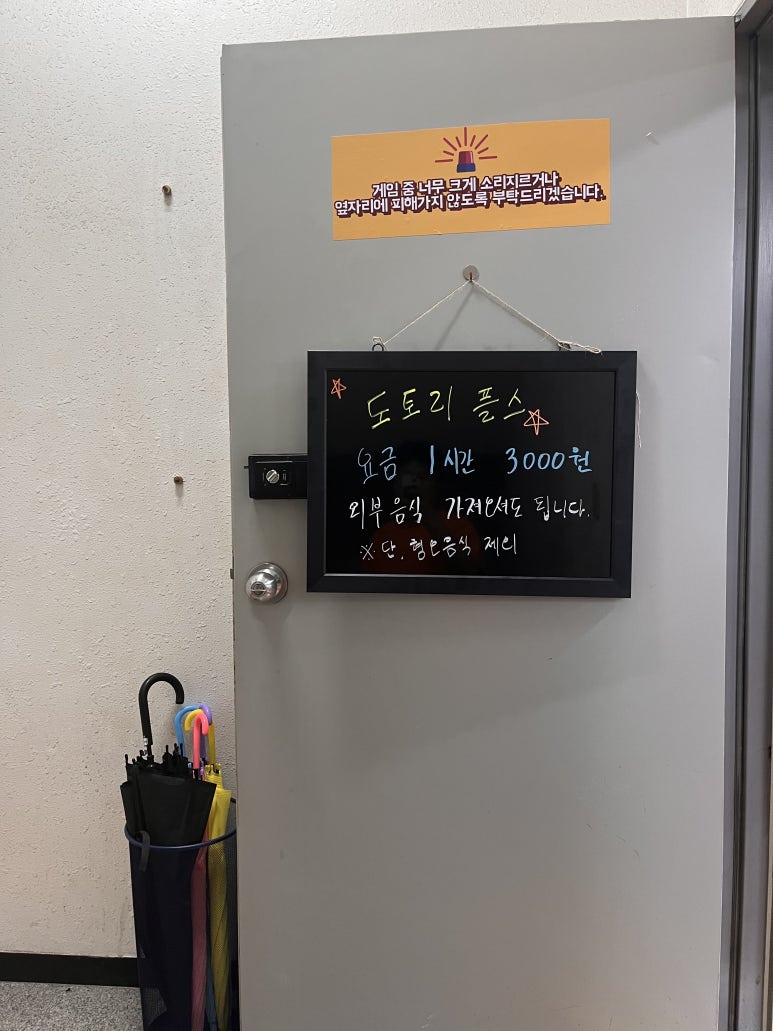 게임 중 너무 크게 소리지르거나
옆자리에 피해가지 않도록 부탁드리겠습니다.
도토리 플스
요금 1시간 3000원
외부음식 가져오셔도 됩니다.
※ 단, 혐오음식 제외